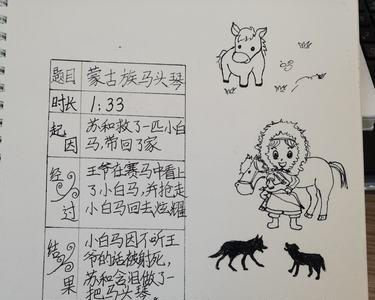 题目 蒙古族马头琴
时长 1:33
起因 苏和救了一匹小白
马,带回了家
经过 王爷在赛马中看上
了小白马,并抢走
小白马回去炫耀
结果 小白马因不听王
爷的话被射死,
苏和含泪做了一
把马头琴。